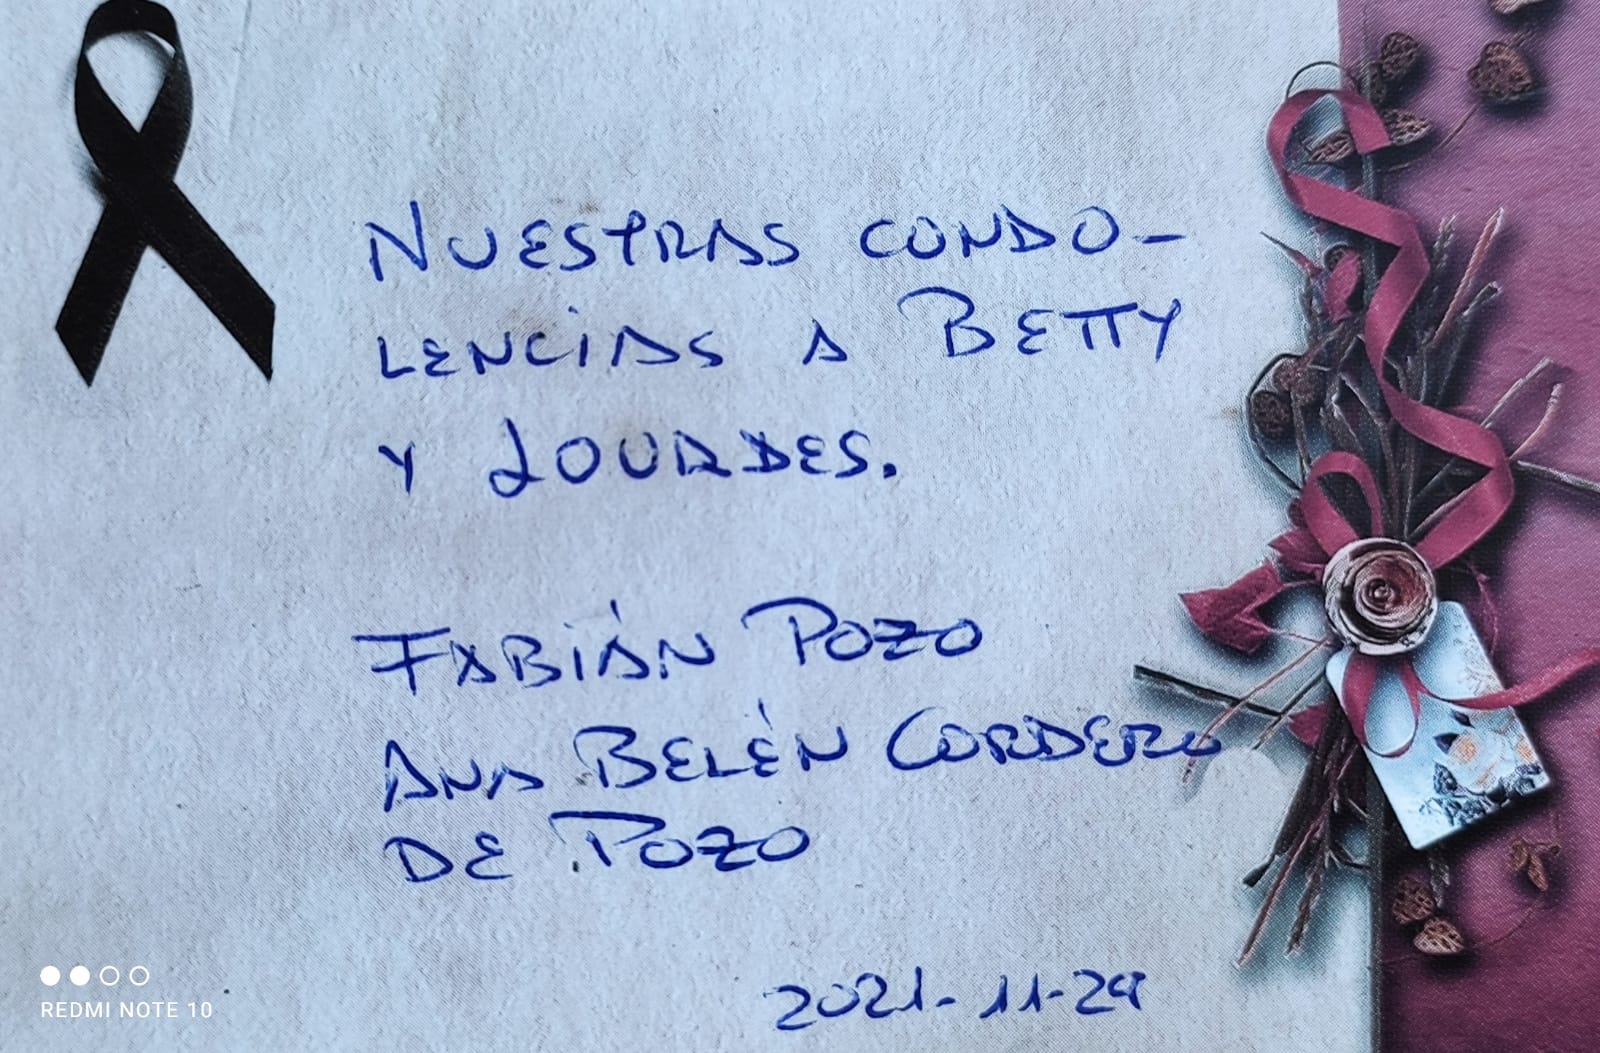 NUESTRAS CONDO-
LENCIAS A BETTY
Y LOURDES.
FABIÁN POZO
ANA BELÉN CORDERO
DE POZO
2021-11-29
REDMI NOTE 10